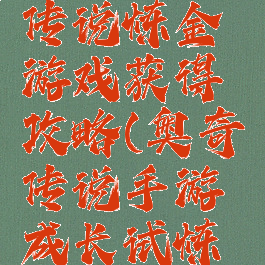 传说炼金
游戏获得
攻略(奥奇
传说手游
成长试炼